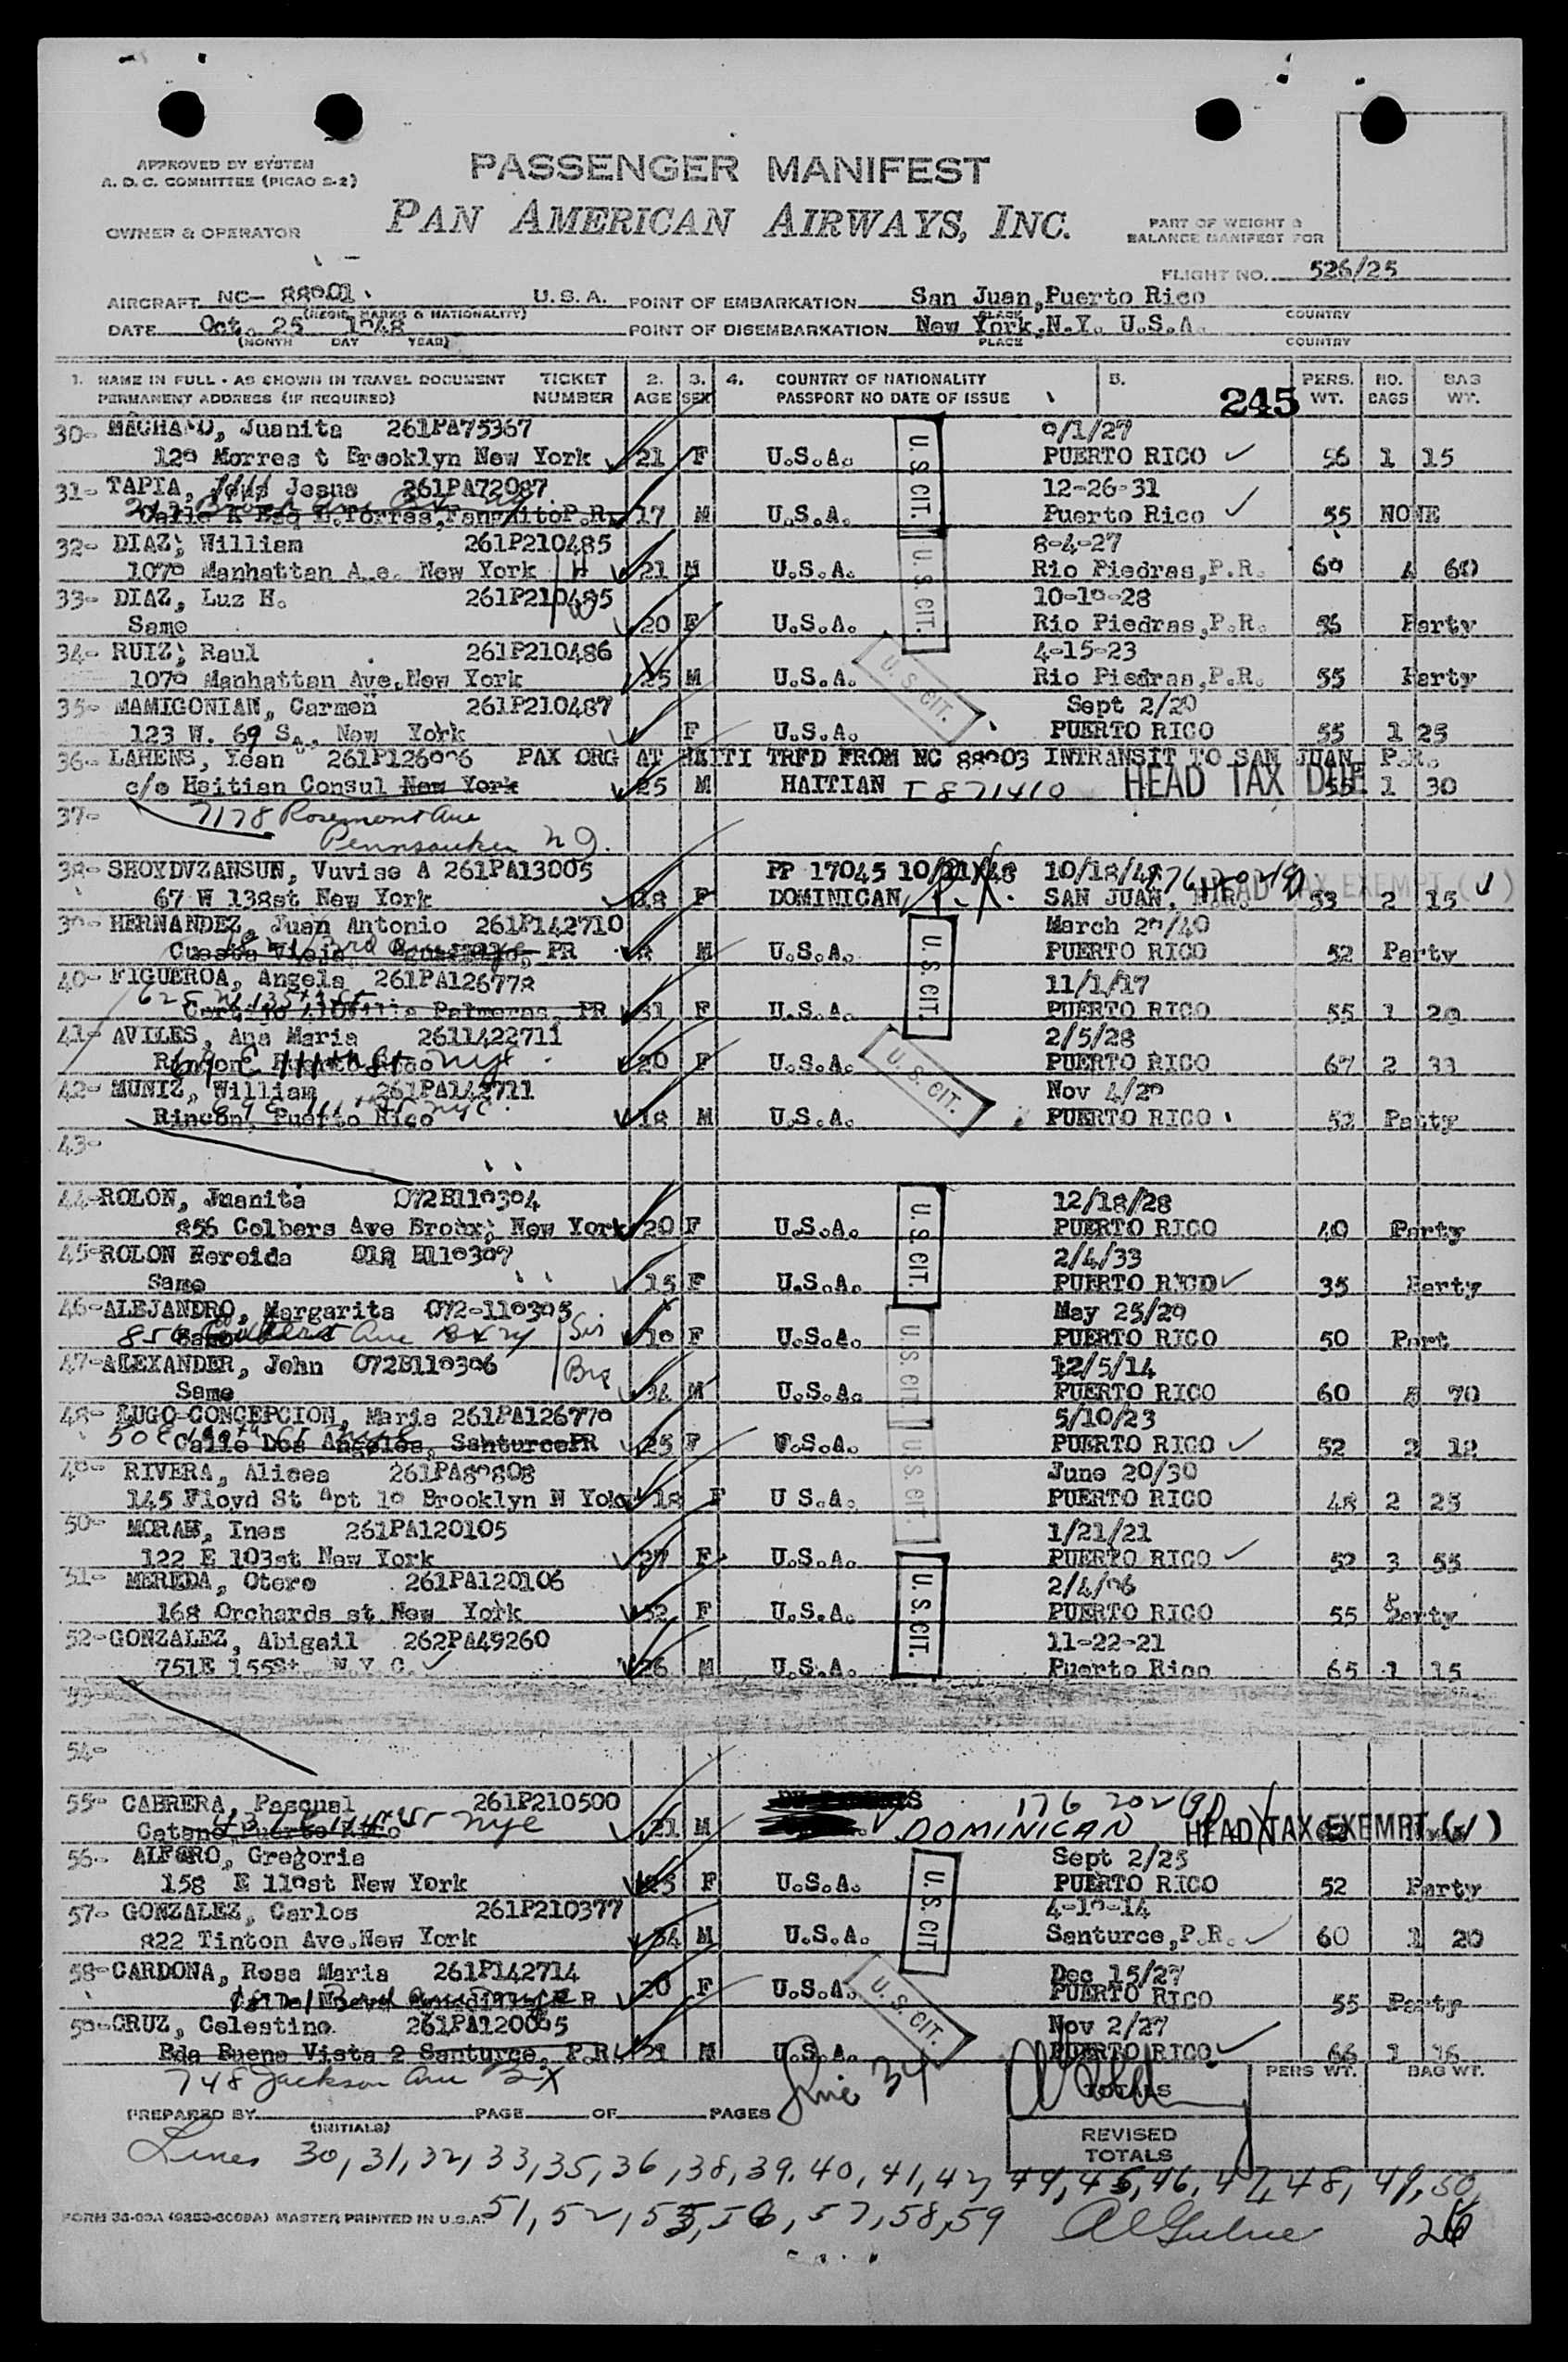 APPROVED BY SYSTEM
A. D. C. COMMITTEE (PICAO S-2)
PASSENGER MANIFEST
PAN AMERICAN AIRWAYS, INC.
OWNER & OPERATOR
PART OF WEIGHT &
BALANCE MANIFEST FOR
FLIGHT NO. 526/25
AIRCRAFT NC- 88901 U.S.A. POINT OF EMBARKATION San Juan, Puerto Rico
(REGIS. MARKS & NATIONALITY) PLACE COUNTRY
DATE Oct. 25 1948 POINT OF DISEMBARKATION New York, N.Y. U.S.A.
(MONTH DAY YEAR) PLACE COUNTRY
1. NAME IN FULL - AS SHOWN IN TRAVEL DOCUMENT TICKET 2. 3. 4. COUNTRY OF NATIONALITY 5. PERS. NO. BAG
PERMANENT ADDRESS (IF REQUIRED) NUMBER AGE SEX PASSPORT NO DATE OF ISSUE 245 WT. BAGS WT.
30- Juanita 261PA75367 9/1/27
Brooklyn New York 21 F U.S.A. PUERTO RICO 56 1 15
31- TAPIA, Jesus 261PA72087 12-26-31
17 M U.S.A. Puerto Rico 55 NONE
32- DIAZ, William 261P210485 8-4-27
1079 Manhattan A.e. New York H 21 M U.S.A. Rio Piedras, P.R. 60 60
33- DIAZ, Luz H. 261P210485 10-19-28
Same W 20 F U.S.A. Rio Piedras, P.R. Party
34- RUIZ, Raul 261P210486 4-15-23
1079 Manhattan Ave. New York 25 M U.S.A. Rio Piedras, P.R. 55 Party
35- MAMIGONIAN, Carmen 261P210487 Sept 2/20
123 W. 69 St., New York F U.S.A. PUERTO RICO 55 1 25
36- LAHENS, Yean 261P126996 PAX ORG AT HAITI TRFD FROM NC 88903 INTRANSIT TO SAN JUAN P.R.
c/o Haitian Consul New York 25 M HAITIAN I 871410 HEAD TAX DUE 55 1 30
37- 7178 Rosemont Ave
Pennsauken N J.
38- SHOYDVZANSUN, Vuvise A 261PA13005 PP 17045 10/21/48 10/18/48
67 W 138st New York F DOMINICAN SAN JUAN, HEAD TAX EXEMPT 53 2 15
39- HERNANDEZ, Juan Antonio 261P142710 March 29/40
PR 8 M U.S.A. PUERTO RICO 52 Party
40- FIGUEROA, Angela 261PA126778 11/1/17
625 W 135th St
Villa Palmeras, PR 31 F U.S.A. PUERTO RICO 55 1 20
41- AVILES, Ana Maria 261142271 2/5/28
Rincon Puerto Rico 69 E 111th St nyc 20 F U.S.A. PUERTO RICO 67 2 33
42- MUNIZ, William 261PA142711 Nov 4/29
Rincon, Puerto Rico 18 M U.S.A. PUERTO RICO 52 Party
43-
44- ROLON, Juanita 072E110304 12/18/28
856 Colbers Ave Bronx, New York 20 F U.S.A. PUERTO RICO 40 Party
45- ROLON Hereida E110307 2/4/33
Same 15 F U.S.A. PUERTO RICO 35 Party
46- ALEJANDRO, Margarita 072-110305 May 25/29
856 Ave BX NY Sis 19 F U.S.A. PUERTO RICO 50 Part
47- ALEXANDER, John 072E110306 12/5/14
Same 34 M U.S.A. PUERTO RICO 60 70
48- LUGO-CONCEPCION, Maria 261PA126779 5/10/23
Calle Dos Angeles, Santurce PR 25 F U.S.A. PUERTO RICO 52 2 12
49- RIVERA, Alicea 261PA89808 June 20/30
145 Floyd St Apt 19 Brooklyn N Yok 18 F U S.A. PUERTO RICO 48 2 25
50- MORAN, Ines 261PA120105 1/21/21
122 E 103st New York 27 F U.S.A. PUERTO RICO 52 3 55
51- MEREDA, Otero 261PA120106 2/4/96
168 Orchards st New York 52 F U.S.A. PUERTO RICO 55 Party
52- GONZALEZ, Abigail 262PA49260 11-22-21
751E 155St. N.Y.C. 26 M U.S.A. Puerto Rico 65 1 15
54-
55- CABRERA, Pascual 261P210500 176 202 GD
Puerto Rico nyc 21 M DOMINICAN HEAD TAX EXEMPT
56- ALFARO, Gregoria Sept 2/25
158 E 119st New York F U.S.A. PUERTO RICO 52 Party
57- GONZALEZ, Carlos 261P210377 4-19-14
822 Tinton Ave. New York 34 M U.S.A. Santurce, P.R. 60 1 20
58- CARDONA, Rosa Maria 261P142714 Dec 15/27
20 F U.S.A. PUERTO RICO 55 Party
59- CRUZ, Celestino 261PA120095 Nov 2/27
Bda Buena Vista 2 Santurce, P.R. 21 M U.S.A. PUERTO RICO 66 1 16
748 Jackson Ave BX
U.S. CIT.
U.S. CIT.
U.S. CIT.
U.S. CIT.
U.S. CIT.
U.S. CIT.
U.S. CIT.
U.S. CIT.
U.S. CIT.
U.S. CIT
U.S. CIT.
Line 34 TOTALS PERS WT. BAG WT.
PREPARED BY PAGE OF PAGES
(INITIALS)
REVISED
TOTALS
Lines 30, 31, 32, 33, 35, 36, 38, 39, 40, 41, 42, 44, 45, 46, 47, 48, 49, 50,
FORM 36-09A MASTER PRINTED IN U.S.A. 51, 52, 55, 56, 57, 58, 59 26